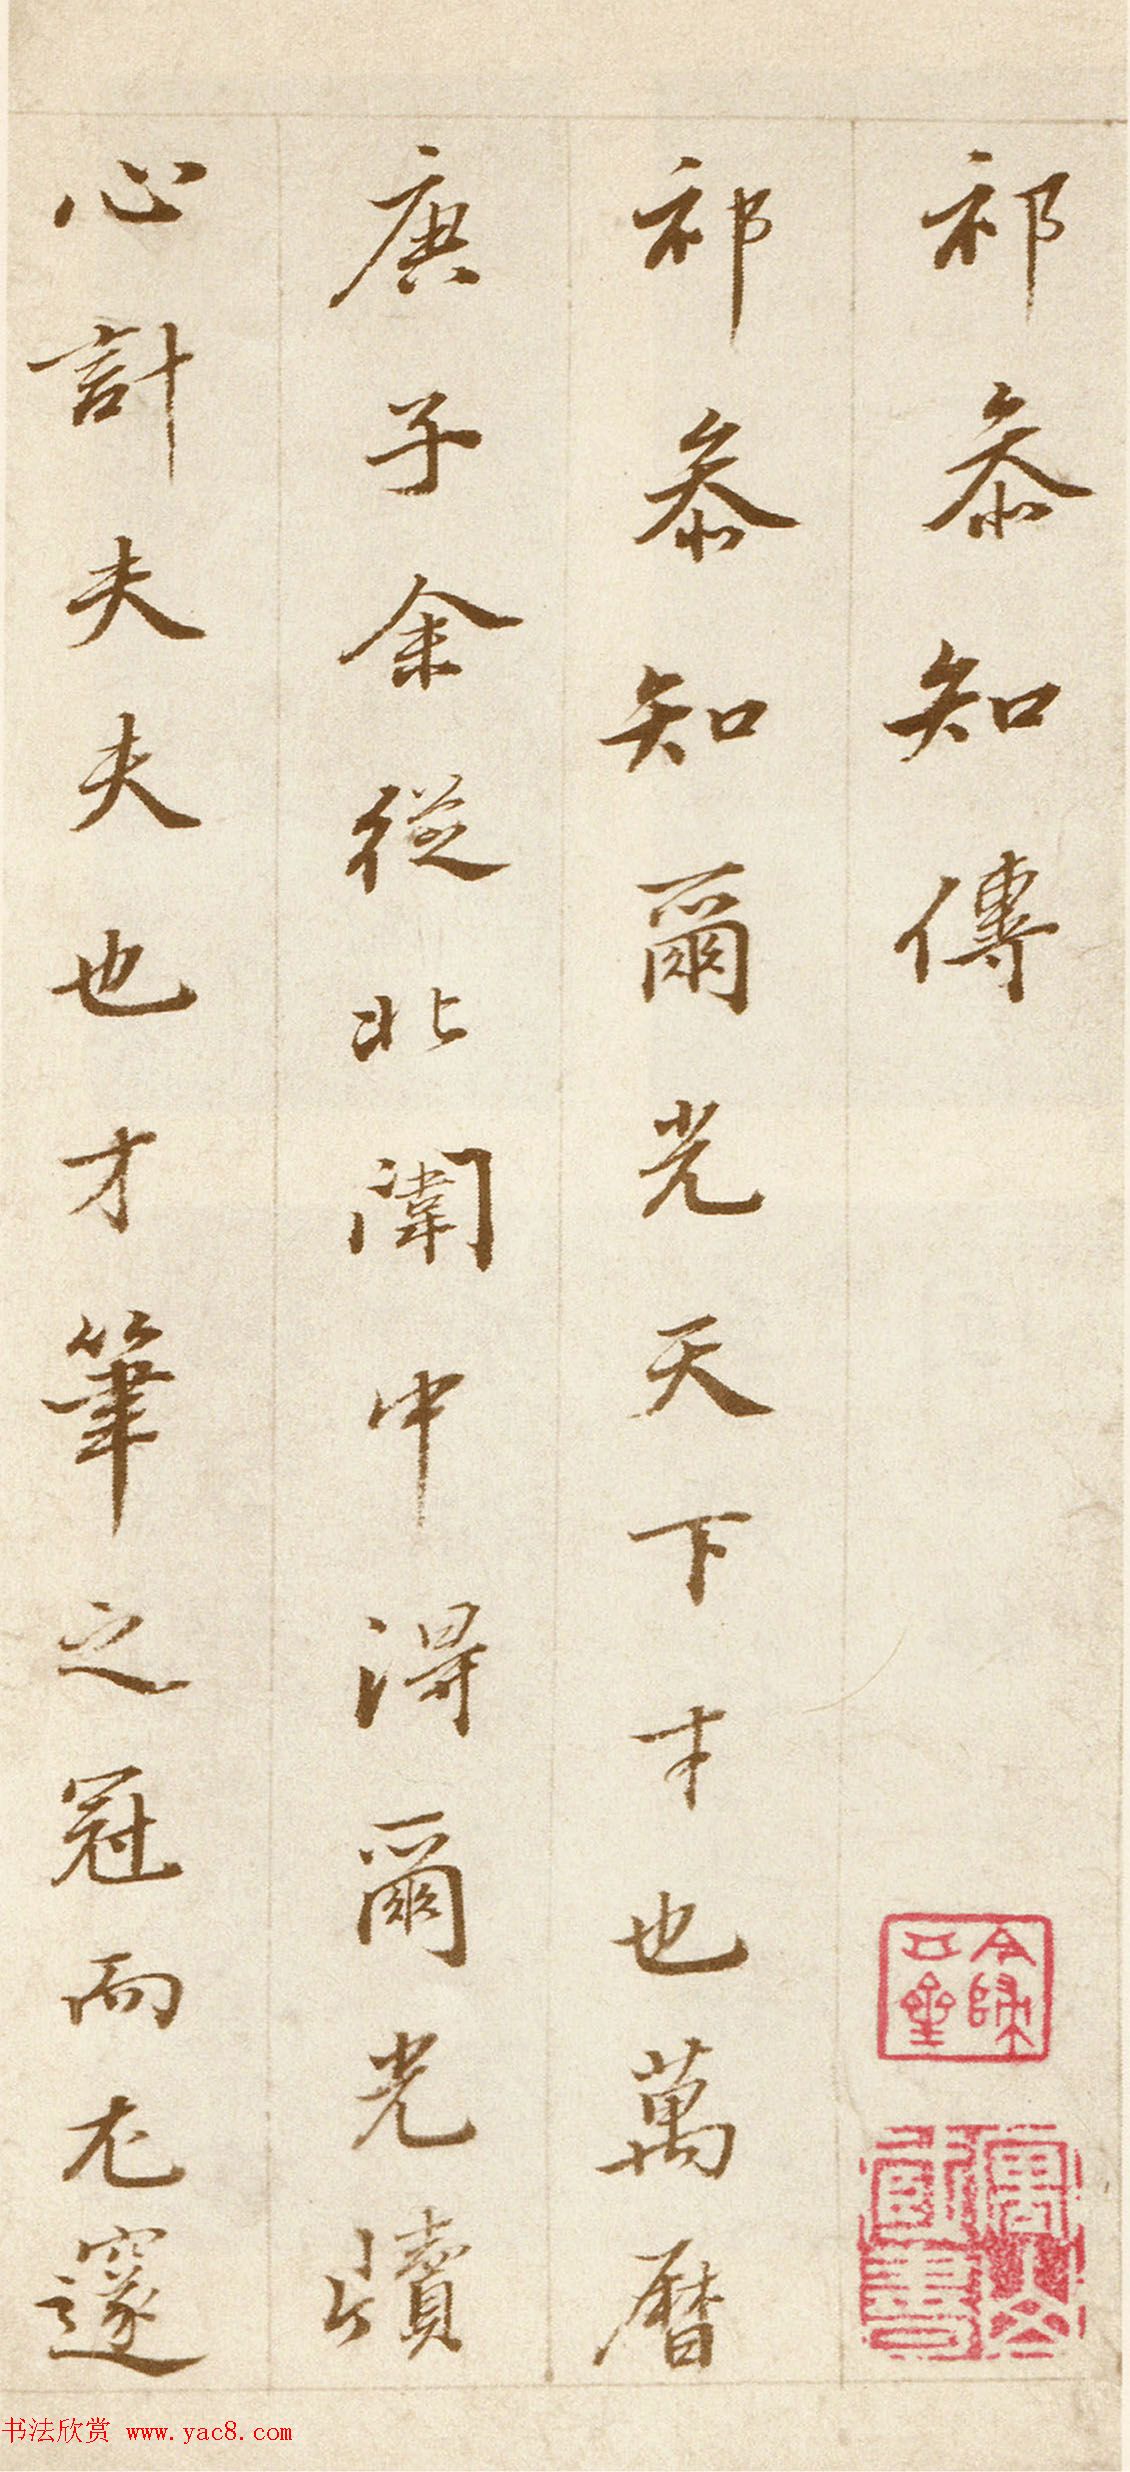 祁叅知傳
祁叅知爾光天下才也萬曆
庚子余從北闈中得爾光牘
心計夫夫也才筆之冠而尤邃
书法欣赏 www.yac8.com